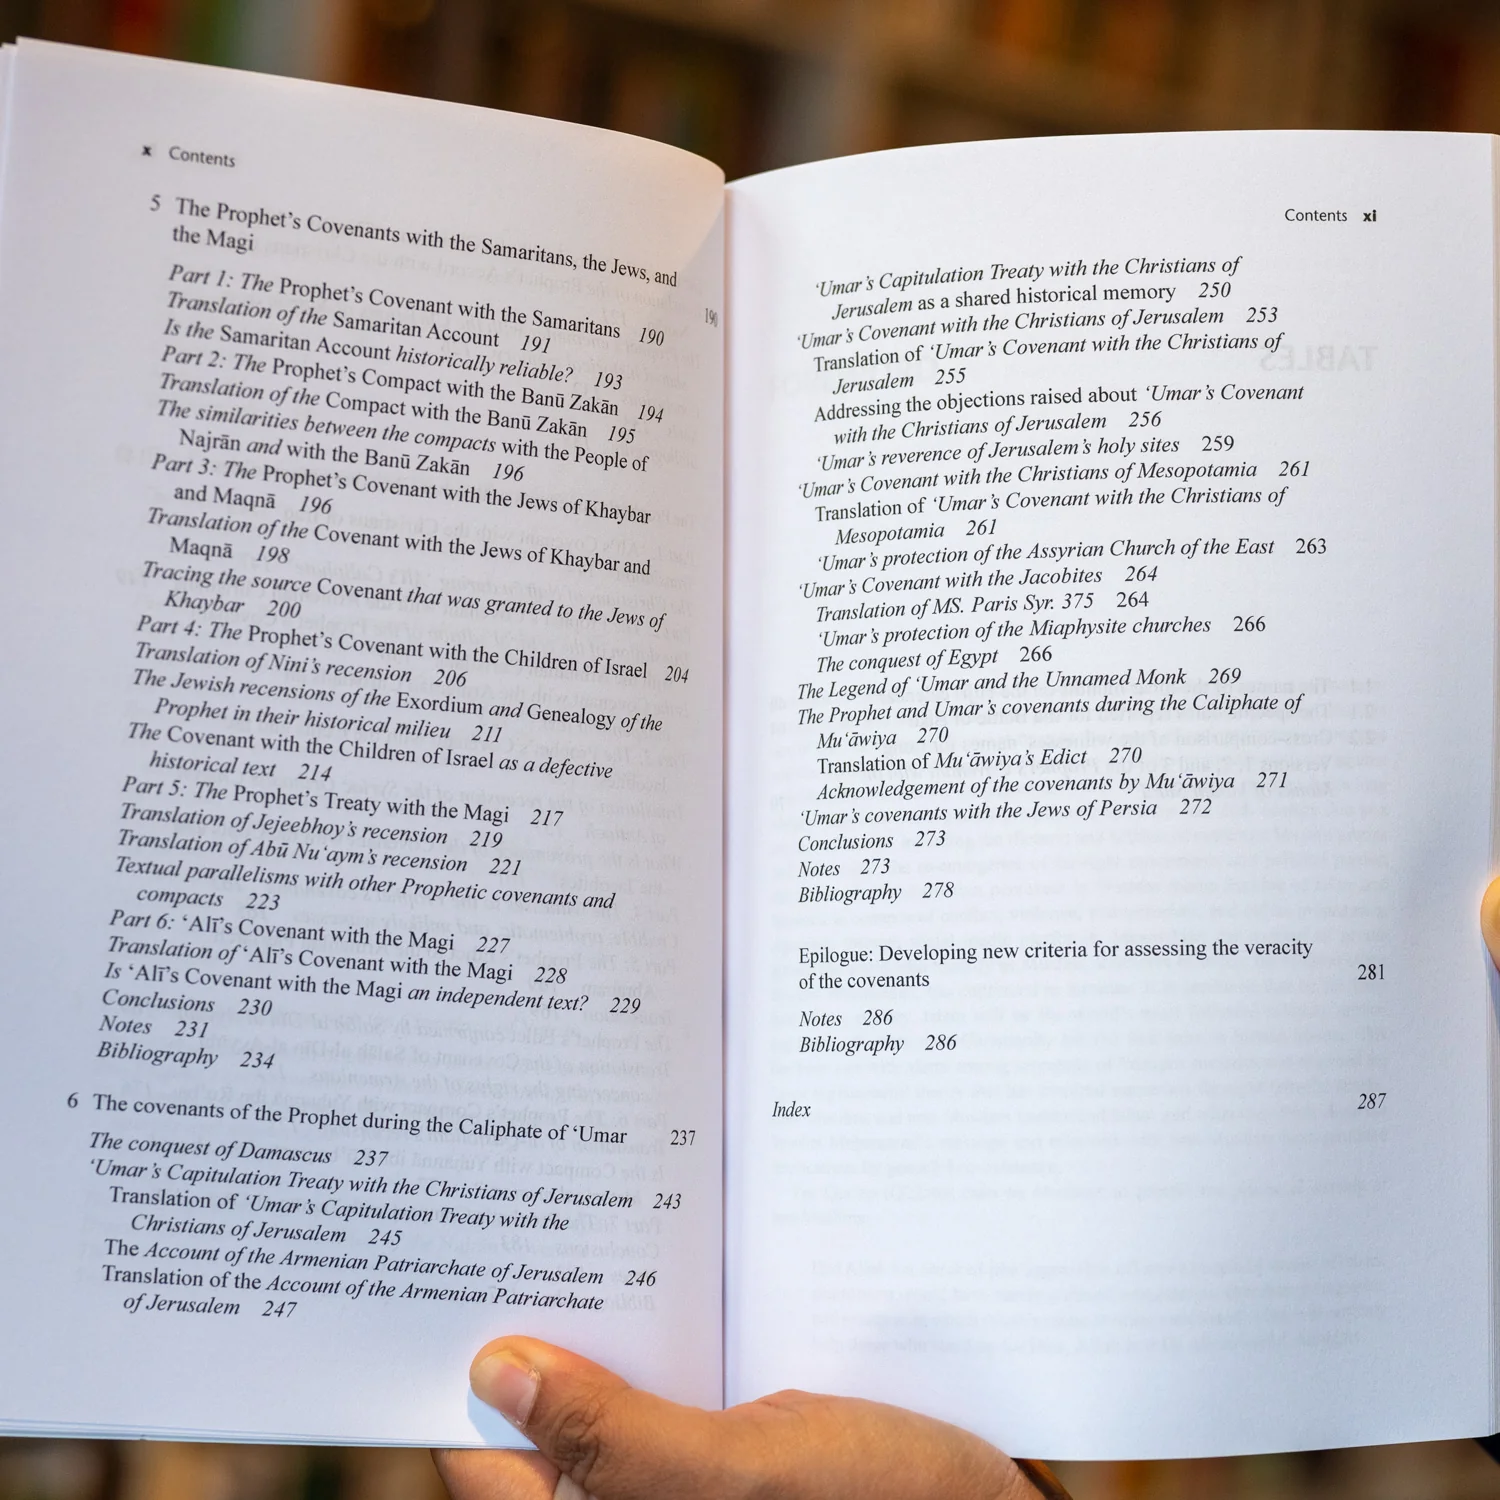 x Contents
5 The Prophet's Covenants with the Samaritans, the Jews, and
the Magi 190
Part 1: The Prophet's Covenant with the Samaritans 190
Translation of the Samaritan Account 191
Is the Samaritan Account historically reliable? 193
Part 2: The Prophet's Compact with the Banū Zakān 194
Translation of the Compact with the Banū Zakān 195
The similarities between the compacts with the People of
Najrān and with the Banū Zakān 196
Part 3: The Prophet's Covenant with the Jews of Khaybar
and Maqnā 196
Translation of the Covenant with the Jews of Khaybar and
Maqnā 198
Tracing the source Covenant that was granted to the Jews of
Khaybar 200
Part 4: The Prophet's Covenant with the Children of Israel 204
Translation of Nini's recension 206
The Jewish recensions of the Exordium and Genealogy of the
Prophet in their historical milieu 211
The Covenant with the Children of Israel as a defective
historical text 214
Part 5: The Prophet's Treaty with the Magi 217
Translation of Jejeebhoy's recension 219
Translation of Abū Nu‘aym's recension 221
Textual parallelisms with other Prophetic covenants and
compacts 223
Part 6: ‘Alī's Covenant with the Magi 227
Translation of ‘Alī's Covenant with the Magi 228
Is ‘Alī's Covenant with the Magi an independent text? 229
Conclusions 230
Notes 231
Bibliography 234
6 The covenants of the Prophet during the Caliphate of ‘Umar 237
The conquest of Damascus 237
‘Umar's Capitulation Treaty with the Christians of Jerusalem 243
Translation of ‘Umar's Capitulation Treaty with the
Christians of Jerusalem 245
The Account of the Armenian Patriarchate of Jerusalem 246
Translation of the Account of the Armenian Patriarchate
of Jerusalem 247
Contents xi
‘Umar's Capitulation Treaty with the Christians of
Jerusalem as a shared historical memory 250
‘Umar's Covenant with the Christians of Jerusalem 253
Translation of ‘Umar's Covenant with the Christians of
Jerusalem 255
Addressing the objections raised about ‘Umar's Covenant
with the Christians of Jerusalem 256
‘Umar's reverence of Jerusalem's holy sites 259
‘Umar's Covenant with the Christians of Mesopotamia 261
Translation of ‘Umar's Covenant with the Christians of
Mesopotamia 261
‘Umar's protection of the Assyrian Church of the East 263
‘Umar's Covenant with the Jacobites 264
Translation of MS. Paris Syr. 375 264
‘Umar's protection of the Miaphysite churches 266
The conquest of Egypt 266
The Legend of ‘Umar and the Unnamed Monk 269
The Prophet and Umar's covenants during the Caliphate of
Mu‘āwiya 270
Translation of Mu‘āwiya's Edict 270
Acknowledgement of the covenants by Mu‘āwiya 271
‘Umar's covenants with the Jews of Persia 272
Conclusions 273
Notes 273
Bibliography 278
Epilogue: Developing new criteria for assessing the veracity
of the covenants 281
Notes 286
Bibliography 286
Index 287